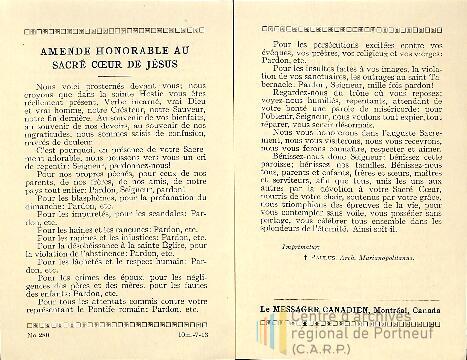 AMENDE HONORABLE AU
SACRÉ CŒUR DE JÉSUS
Nous voici prosternés devant vous; nous
croyons que dans la sainte Hostie vous êtes
réellement présent, Verbe incarné, vrai Dieu
et vrai homme, notre Créateur, notre Sauveur,
notre fin dernière. Au souvenir de vos bienfaits,
au souvenir de nos devoirs, au souvenir de nos
ingratitudes, nous sommes saisis de confusion,
navrés de douleur.
C'est pourquoi, en présence de votre Sacre-
ment adorable, nous poussons vers vous un cri
de repentir: Seigneur, pardonnez-nous!
Pour nos propres péchés, pour ceux de nos
parents, de nos frères, de nos amis, de notre
pays tout entier: Pardon, Seigneur, pardon!
Pour les blasphèmes, pour la profanation du
dimanche: Pardon, etc.
Pour les impuretés, pour les scandales: Par-
don, etc.
Pour les haines et les rancunes: Pardon, etc.
Pour les rapines et les injustices: Pardon, etc.
Pour la désobéissance à la sainte Église, pour
la violation de l'abstinence: Pardon, etc.
Pour les lâchetés et le respect humain: Par-
don, etc.
Pour les crimes des époux, pour les négli-
gences des pères et des mères, pour les fautes
des enfants: Pardon, etc.
Pour tous les attentats commis contre votre
représentant le Pontife romain: Pardon, etc.
No 280
Pour les persécutions excitées contre vos
évêques, vos prêtres, vos religieux et vos vierges:
Pardon, etc.
Pour les insultes faites à vos images, la viola-
tion de vos sanctuaires, les outrages au saint Ta-
bernacle: Pardon, Seigneur, mille fois pardon!
Regardez-nous du trône où vous reposez:
voyez-nous humiliés, repentants, attendant de
votre bonté une parole de miséricorde: pour
l'obtenir, Seigneur, nous voulons tout expier, tout
réparer, vous servir désormais.
Nous vous honorerons dans l'auguste Sacre-
ment, nous vous visiterons, nous vous recevrons,
nous vous ferons connaître, respecter et aimer.
Bénissez-nous donc, Seigneur; bénissez cette
paroisse; bénissez nos familles. Bénissez-nous
tous, parents et enfants, frères et sœurs, maîtres
et serviteurs, afin que tous, unis les uns aux
autres par la dévotion à votre Sacré Cœur,
nourris de votre chair, soutenus par votre grâce,
nous triomphions des épreuves de la vie, pour
vous contempler sans voile, vous posséder sans
partage, vous célébrer tous ensemble dans les
splendeurs de l'éternité. Ainsi soit-il.
Imprimatur:
† PAULUS, Arch. Marianopolitanus.
Le MESSAGER CANADIEN, Montréal, Canada
Centre d'archives
régional de Portneuf
(C.A.R.P.)